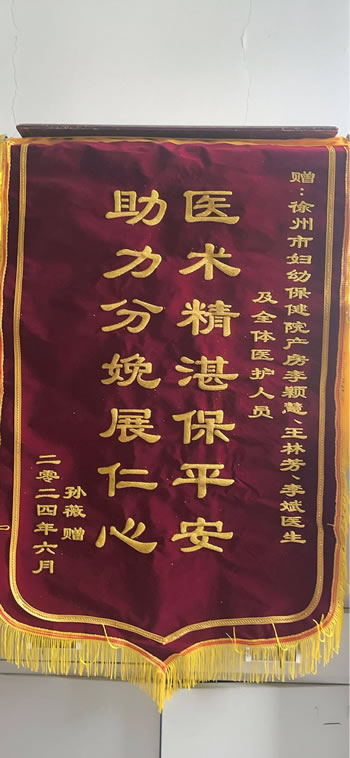 赠：徐州市妇幼保健院产房李颖慧、王林芳、李斌医生
及全体医护人员
医术精湛保平安
助力分娩展仁心
孙薇赠
二零二四年六月